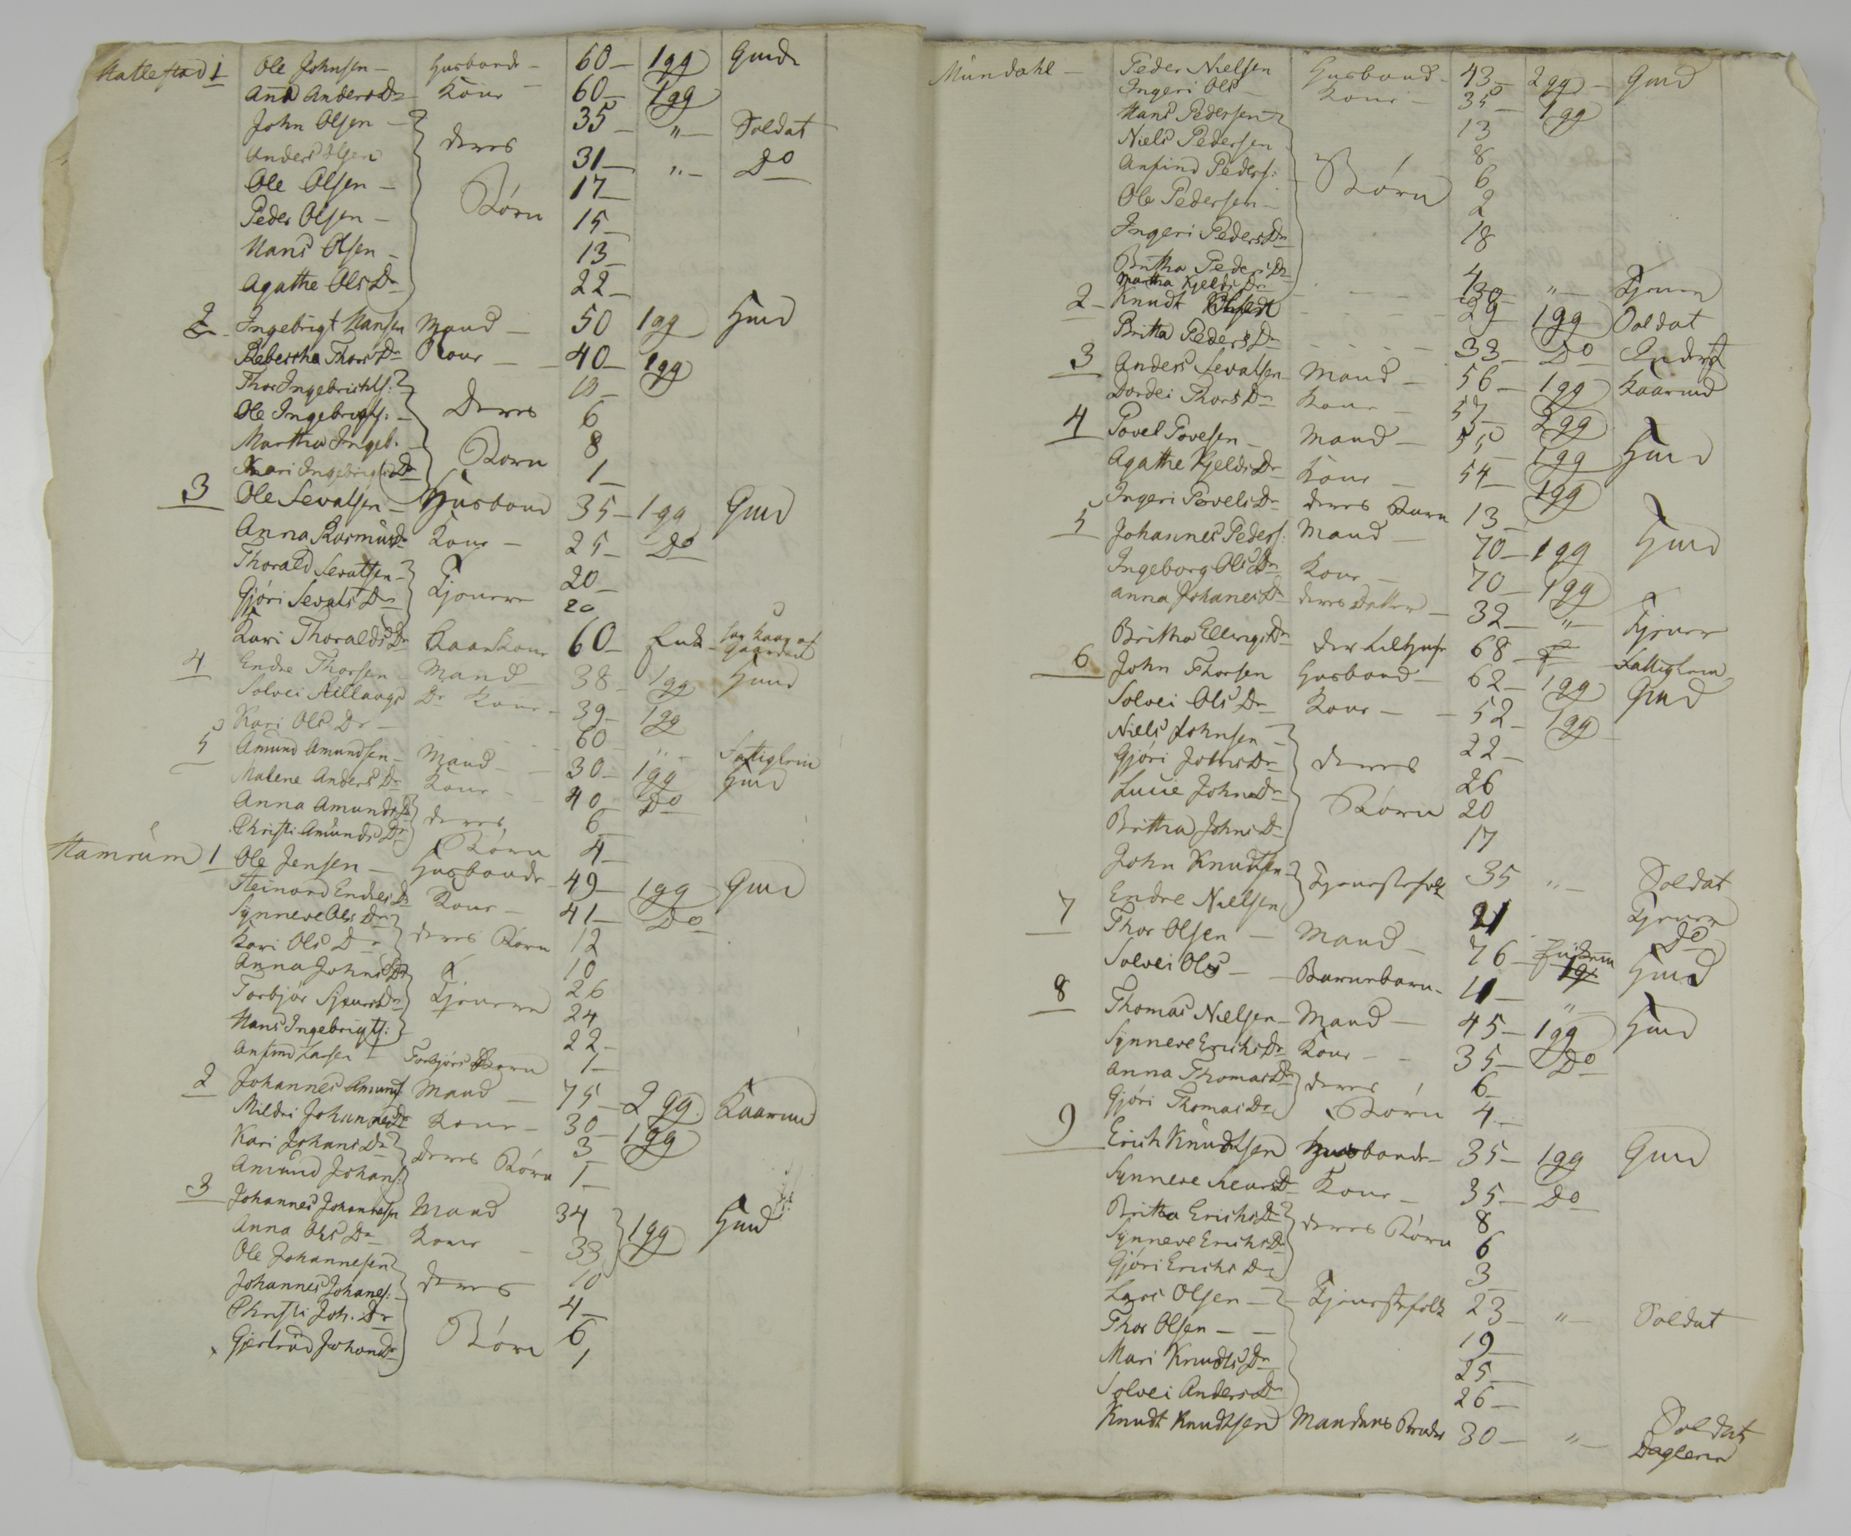 Hatlestad 1 Ole Johnsen – Husbonde – 60 – 1 gg Gmd
Anna Anders Dr Kone – 60 – 1 gg
John Olsen – deres 35 – " – Soldat
Anders Olsen 31 – " – Do
Ole Olsen – Børn 17 –
Peder Olsen – 15 –
Hans Olsen – 13 –
Agathe Ols Dr 22 –
2 Ingebrigt Hansen Mand – 50 1 gg Hmd
Rebeccha Thors Dr Kone – 40 – 1 gg
Thor Ingebrichts: deres
Ole Ingebrigts: – 6
Martha Ingeb. – Børn 8
Kari Ingebrigts Dr 1 –
3 Ole Sevatsen – Husbond 35 – 1 gg Gmd
Anna Rasmus Dr Kone – 25 – Do
Thorald Sevatsen – Tjenere 20 –
Gjöri Sevats Dr 20
Kari Thoralds Dr Kaarkone 60 – Enke
4 Endre Thorsen Mand – 38 – 1 gg Hmd
Solvei Aillaugs Dr Kone – 39 – 1 gg
Kari Ols Dr – 60 – " Fattiglem
5 Amund Amundsen – Mand – 30 – 1 gg Hmd
Malene Anders Dr Kone – 40 – Do
Anna Amunds Dr deres 6
Christi Amunds Dr Børn 4 –
Hamrum 1 Ole Jensen – Husbonde – 49 – 1 gg Gmd
Steinord Endres Dr Kone – 41 – Do
Synneve Ols Dr deres Børn 12
Kari Ols Dr 10
Anna Johns Dr Tjenere 26
Torbjør Sjurs Dr 24
Hans Ingebrigts: 22 –
Anfind Larsen Torbjørs Børn 1 –
2 Johannes Amunds Mand – 75 – 2 gg. Kaarmd
Mildri Johannes Dr Kone – 30 – 1 gg
Kari Johans Dr deres Børn 3
Amund Johans: 1 –
3 Johannes Johannesen Mand 34 1 gg Hmd
Anna Ols Dr Kone – 33
Ole Johannesen deres 10
Johannes Johanes: 4 –
Christi Joh. Dr Børn 6
Gjertrud Johans Dr 1
Mundahl – Peder Nielsen Husbond – 43 – 2 gg – Gmd
Ingeri Ols – Kone – 35 – 1 gg
Hans Pedersen 13
Niels Pedersen 8
Anfind Peders: Børn 6
Ole Pedersen – 2
Ingeri Peders Dr 18
Britha Peders Dr 4
Martha Kjelds Dr 30 – " – Tjener
2 – Knudt 29 1 gg Soldat
Britta Peders Dr 33 – Do
3 Anders Sevatsen – Mand – 56 – 1 gg Kaarmd
Dordei Thors Dr Kone – 57 – 2 gg
4 Povel Povelsen – Mand – 55 1 gg Hmd
Agathe Kjelds Dr Kone – 54 – 1 gg
Ingeri Povels Dr deres Barn 13 –
5 Johannes Peders: Mand – 70 – 1 gg Hmd
Ingeborg Ols Dr Kone – 70 – 1 gg
Anna Johanes Dr deres Datter – 32 – " – Tjener
Britha Ellings Dr 68 – Fattiglem
6 John Thorsen Husbond – 62 – 1 gg Gmd
Solvei Ols Dr Kone – 52 – 1 gg –
Niels Johnsen – deres 22 –
Gjöri Johns Dr 26
Lucie Johns Dr Børn 20
Britha Johns Dr 17
John Knudsen Tjenestefolk 35 " – Soldat
Endre Nielsen 21 Tjener
7 Thor Olsen – Mand – 76 – Hmd
Solvei Ols – – Barnebarn – 11 – "
8 Thomas Nielsen – Mand – 45 – 1 gg Hmd
Synneve Erichs Dr Kone – 35 – Do
Anna Thomas Dr deres 6 –
Gjöri Thomas Dr Børn 4 –
9 Erich Knudtsen Husbonde – 35 – 1 gg Gmd
Synneve Dr Kone – 35 – Do
Britha Erichs Dr deres Børn 8
Synneve Erichs Dr 6
Gjöri Erichs Dr 3 –
Lars Olsen – Tjenestefolk 23 – " – Soldat
Thor Olsen – – 19 –
Mari Knudts Dr 25 –
Solvei Anders Dr 26 –
Knudt Knudtsen Mandens Broder 30 – " – Soldat
Daglenr